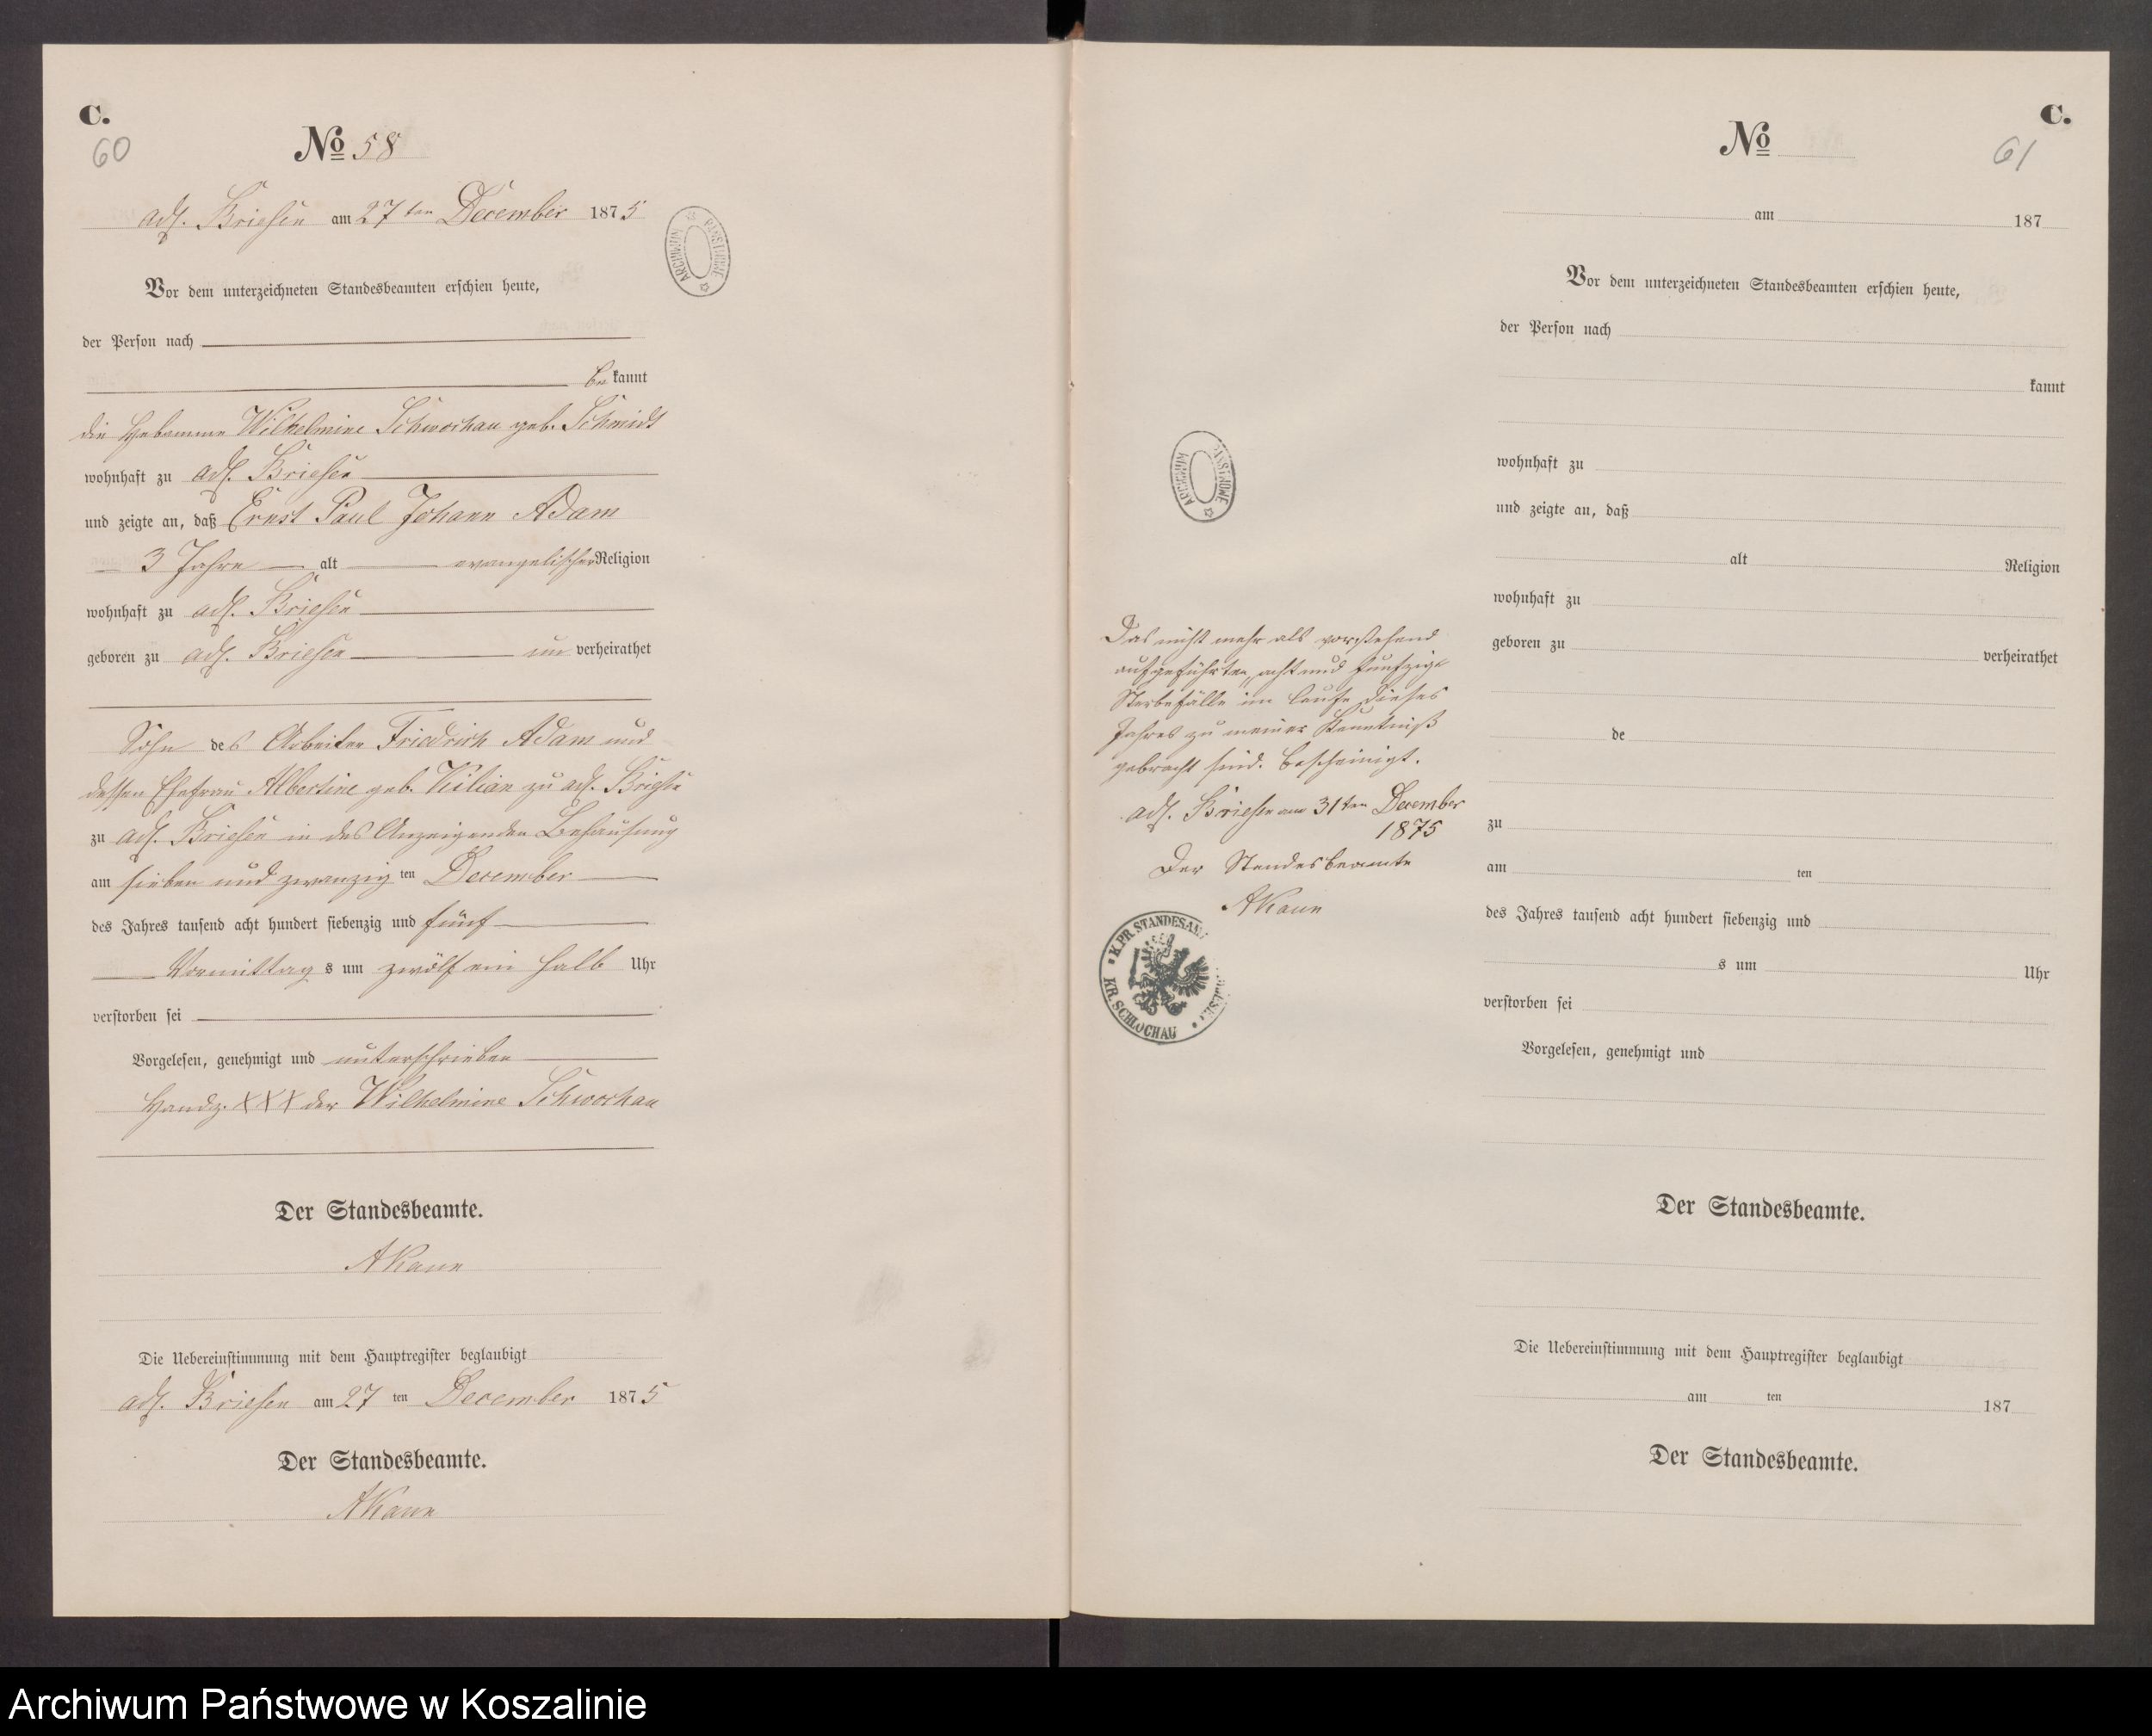 C.
60
No 58
adl. Briesen am 27ten December 1875
Vor dem unterzeichneten Standesbeamten erschien heute,
der Person nach
be kannt
die Hebamme Wilhelmine Schwochau geb. Schmidt
wohnhaft zu adl. Briesen
und zeigte an, daß Ernst Paul Johann Adam
3 Jahre alt evangelischer Religion
wohnhaft zu adl. Briesen
geboren zu adl. Briesen un verheirathet
Sohn des Arbeiter Friedrich Adam und
dessen Ehefrau Albertine geb. Kilian zu adl. Briesen
zu adl. Briesen in des Anzeigenden Behausung
am sieben und zwanzig ten December
des Jahres tausend acht hundert siebenzig und fünf
Vormittag s um zwölf ein halb Uhr
verstorben sei
Vorgelesen, genehmigt und unterschrieben
Handz. XXX der Wilhelmine Schwochau
Der Standesbeamte.
Die Uebereinstimmung mit dem Hauptregister beglaubigt
adl. Briesen am 27 ten December 1875
Der Standesbeamte.
ARCHIWUM PAŃSTWOWE
C.
No
61
am 187
Vor dem unterzeichneten Standesbeamten erschien heute,
der Person nach
kannt
wohnhaft zu
und zeigte an, daß
alt Religion
wohnhaft zu
geboren zu verheirathet
de
zu
am ten
des Jahres tausend acht hundert siebenzig und
s um Uhr
verstorben sei
Vorgelesen, genehmigt und
Der Standesbeamte.
Die Uebereinstimmung mit dem Hauptregister beglaubigt
am ten 187
Der Standesbeamte.
ARCHIWUM PAŃSTWOWE
Das nicht mehr als vorstehend
aufgeführten, acht und funfzig
Sterbefälle im Laufe dieses
Jahres zu meiner Kenntniß
gebracht sind. bescheinigt.
adl. Briesen am 31ten December
1875
Der Standesbeamte
K. PR. STANDESAMT
KR. SCHLOCHAU
Archiwum Państwowe w Koszalinie